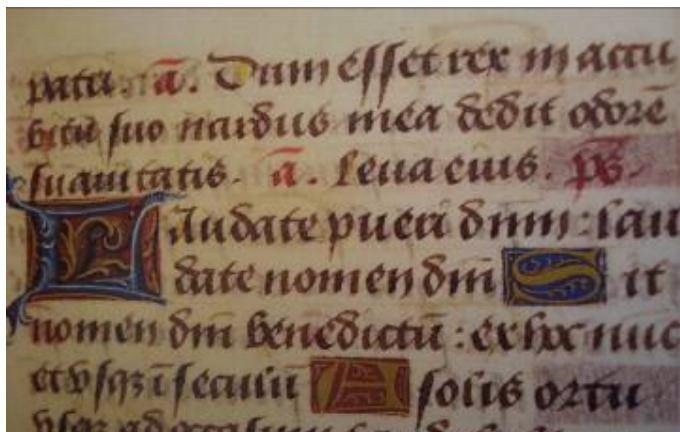 patri. a. Dum esset rex in accu
bitu suo nardus mea dedit odorē
suavitatis. a. Leva eius. ps.
Laudate pueri dnm: lau
date nomen dni Sit
nomen dni benedictū: ex hoc nuc
et usqꝫ ī seculū A solis ortu
usqꝫ ad occasum